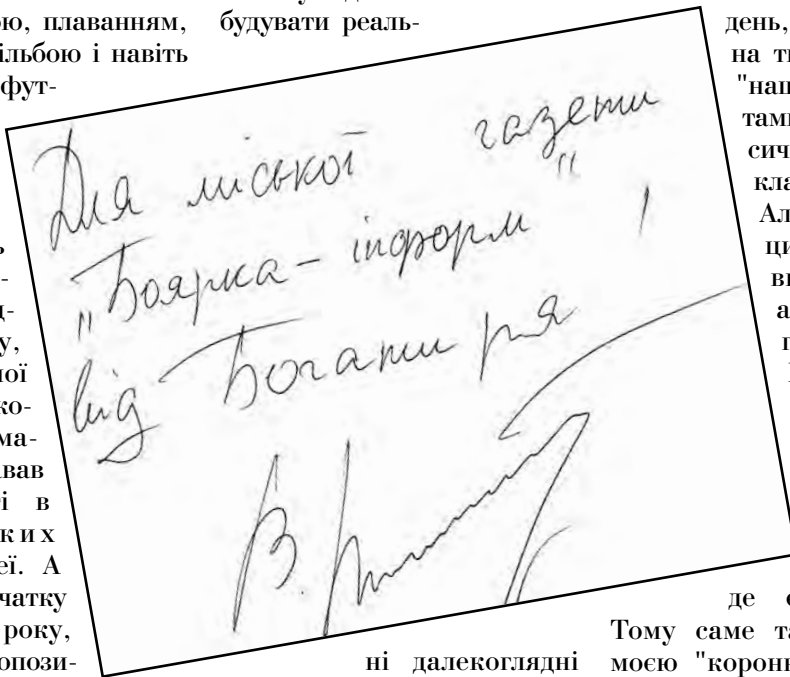 ою, плаванням,
ільбою і навіть
фут-
ь
-
д-
у,
ної
ко-
ма-
авав
і в
ких
еї. А
чатку
року,
опози-
будувати реаль-
Для міської газети
„Боярка – інформ"
від Богатиря
В.
ні далекоглядні
день,
на
"наш
тами
сич
кла
Ал
ци
ви
а
де
Тому саме та
моєю "корон